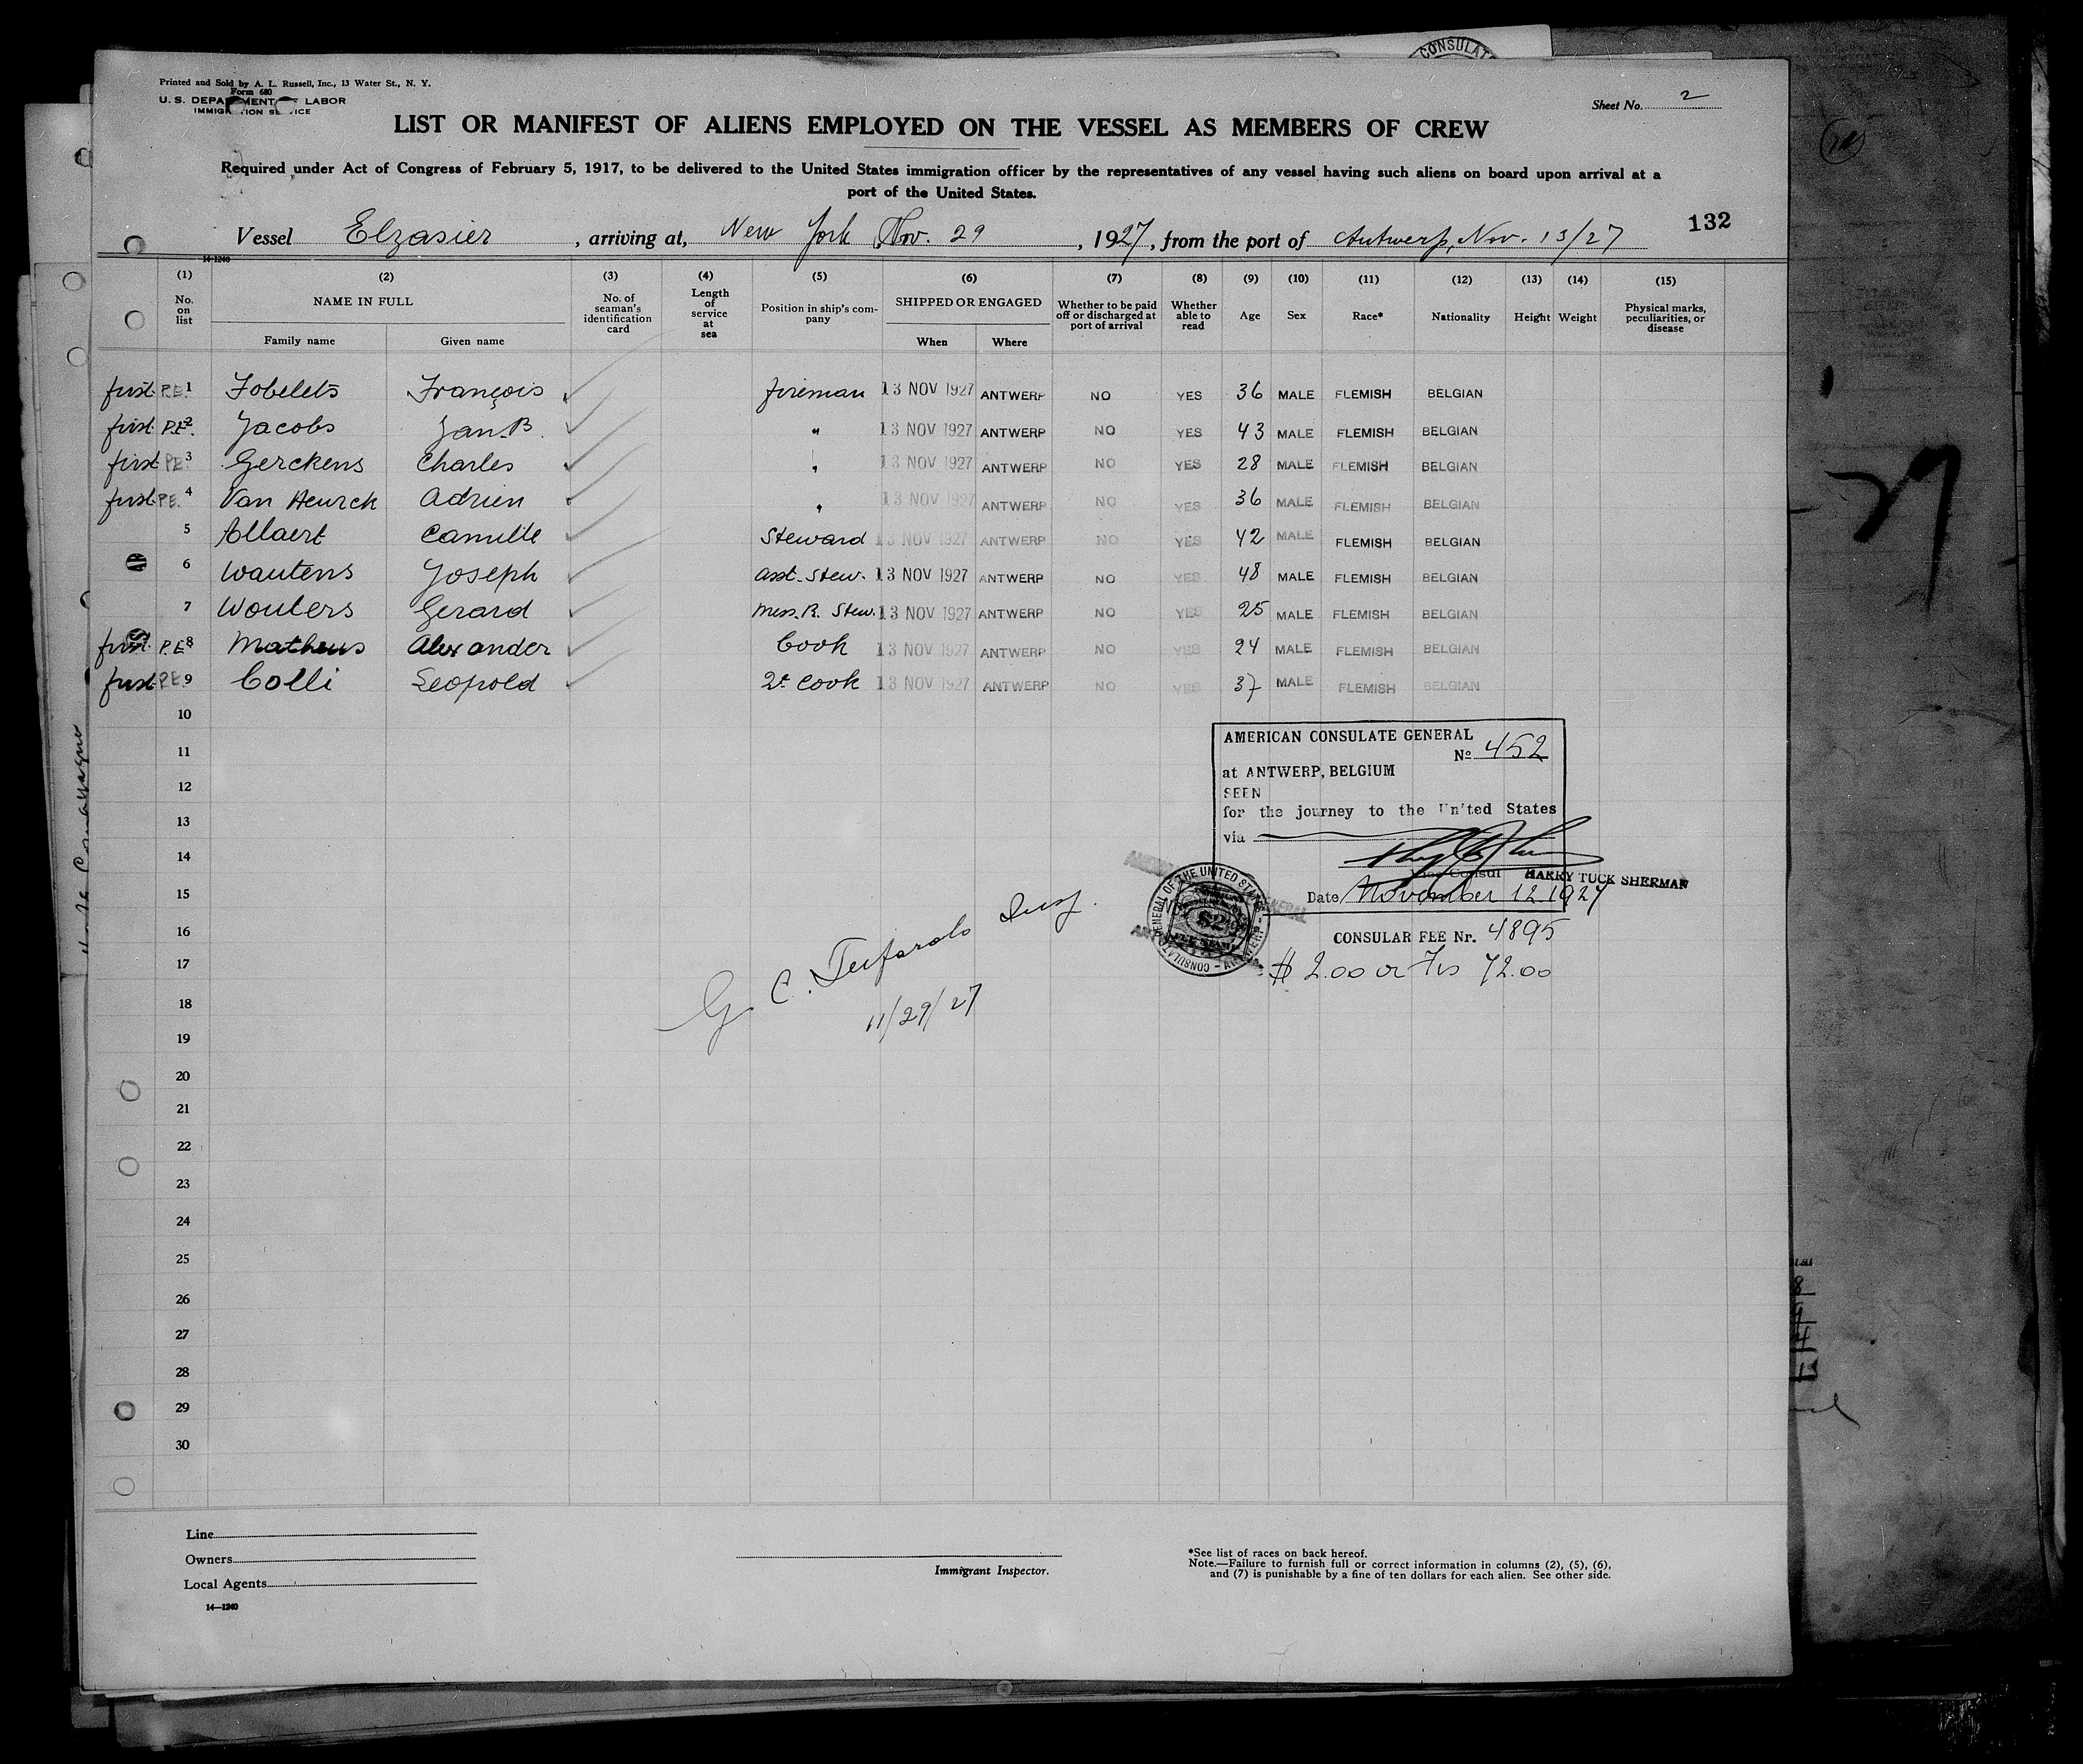 Printed and Sold by A. L. Russell, Inc., 13 Water St., N. Y.
Form 680
U. S. DEPARTMENT OF LABOR
IMMIGRATION SERVICE
Sheet No. 2
LIST OR MANIFEST OF ALIENS EMPLOYED ON THE VESSEL AS MEMBERS OF CREW
Required under Act of Congress of February 5, 1917, to be delivered to the United States immigration officer by the representatives of any vessel having such aliens on board upon arrival at a
port of the United States.
132
Vessel Elzasier, arriving at, New York Nov. 29, 1927, from the port of Antwerp, Nov. 13/27
14-1240
(1) (2) (3) (4) (5) (6) (7) (8) (9) (10) (11) (12) (13) (14) (15)
No. on list NAME IN FULL Family name Given name No. of seaman's identification card Length of service at sea Position in ship's company SHIPPED OR ENGAGED When Where Whether to be paid off or discharged at port of arrival Whether able to read Age Sex Race* Nationality Height Weight Physical marks, peculiarities, or disease
first P.E. 1 Fobelets François fireman 13 NOV 1927 ANTWERP NO YES 36 MALE FLEMISH BELGIAN
first P.E. 2 Jacobs Jan B. " 13 NOV 1927 ANTWERP NO YES 43 MALE FLEMISH BELGIAN
first P.E. 3 Gerckens Charles " 13 NOV 1927 ANTWERP NO YES 28 MALE FLEMISH BELGIAN
first P.E. 4 Van Heurck Adrien " 13 NOV 1927 ANTWERP NO YES 36 MALE FLEMISH BELGIAN
5 Allaert Camille Steward 13 NOV 1927 ANTWERP NO YES 42 MALE FLEMISH BELGIAN
6 Wautens Joseph Asst. Stew. 13 NOV 1927 ANTWERP NO YES 48 MALE FLEMISH BELGIAN
7 Wouters Gerard Mess. R. Stew. 13 NOV 1927 ANTWERP NO YES 25 MALE FLEMISH BELGIAN
first P.E. 8 Matheus Alexander Cook 13 NOV 1927 ANTWERP NO YES 24 MALE FLEMISH BELGIAN
first P.E. 9 Colli Leopold 2d Cook 13 NOV 1927 ANTWERP NO YES 37 MALE FLEMISH BELGIAN
10
11
12
13
14
15
16
17
18
19
20
21
22
23
24
25
26
27
28
29
30
AMERICAN CONSULATE GENERAL
No 452
at ANTWERP, BELGIUM
SEEN
for the journey to the United States
via
Vice Consul HARRY TUCK SHERMAN
Date November 12 1927
CONSULAR FEE Nr. 4895
$ 2.00 or Frs 72.00
G. C. Insp.
11/29/27
Line
Owners
Local Agents
14—1240
Immigrant Inspector.
*See list of races on back hereof.
Note.—Failure to furnish full or correct information in columns (2), (5), (6),
and (7) is punishable by a fine of ten dollars for each alien. See other side.